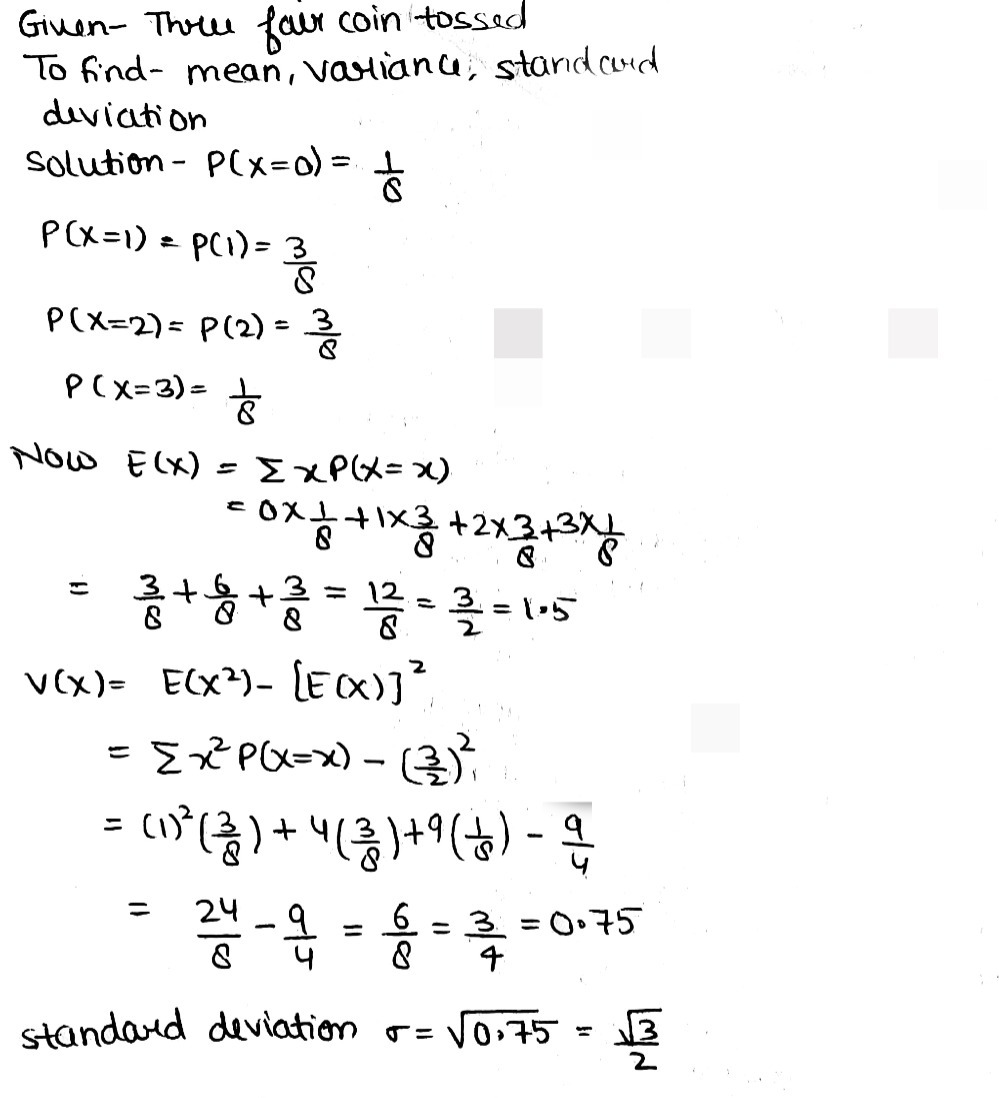 Given- Three fair coin tossed
To find- mean, variance, standard
deviation
Solution - P(X=0) = 1/8
P(X=1) = P(1) = 3/8
P(X=2) = P(2) = 3/8
P(X=3) = 1/8
Now E(x) = Σ x P(X = x)
= 0 × 1/8 + 1 × 3/8 + 2 × 3/8 + 3 × 1/8
= 3/8 + 6/8 + 3/8 = 12/8 = 3/2 = 1.5
V(X) = E(X²) - [E(X)]²
= Σ x² P(X=x) - (3/2)²
= (1)² (3/8) + 4(3/8) + 9(1/8) - 9/4
= 24/8 - 9/4 = 6/8 = 3/4 = 0.75
standard deviation σ = √0.75 = √3/2